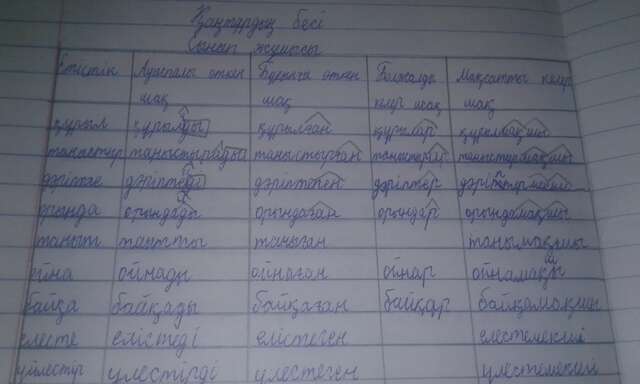 Қаңтардың бесі
Сынып жұмысы
Етістік Ауыспалы өткен шақ Бұрынғы өткен шақ Болжалды келер шақ Мақсатты келер шақ
құрыл құрылды құрылған құрылар құрылмақшы
таныстыр таныстырады таныстырған таныстырар таныстырмақшы
дәріпте дәріптеді дәріптеген дәріптер
орында орындады орындаған орындар орындамақшы
таныт танытты таныған танымақшы
ойна ойнады ойнаған ойнар ойнамақшы
байқа байқады байқаған байқар байқамақшы
елесте елістеді елістеген елестемекші
үйлестір үлестірді үлестеген үлестемекші